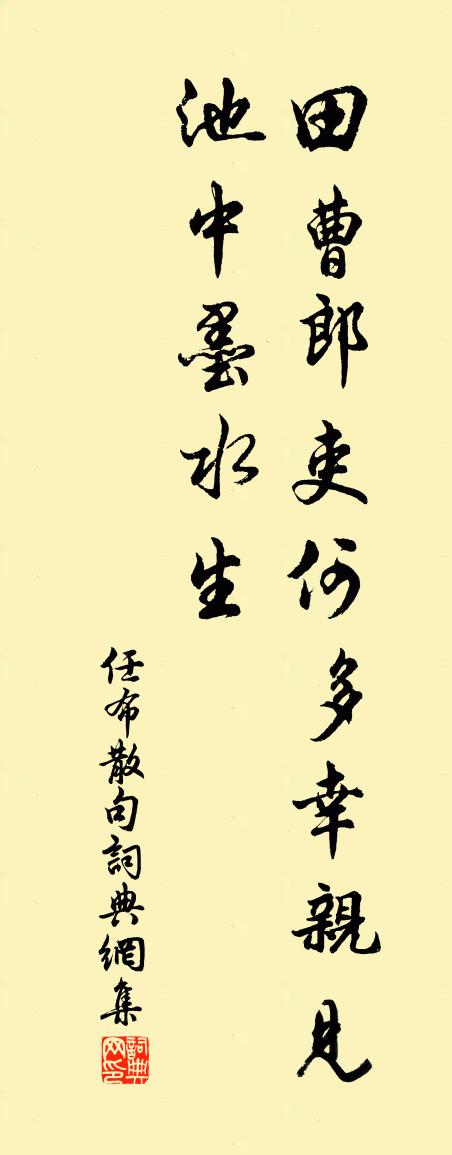 田曹郎吏何多幸親見
池中墨水生
任布散句詞典網集
詞典网印